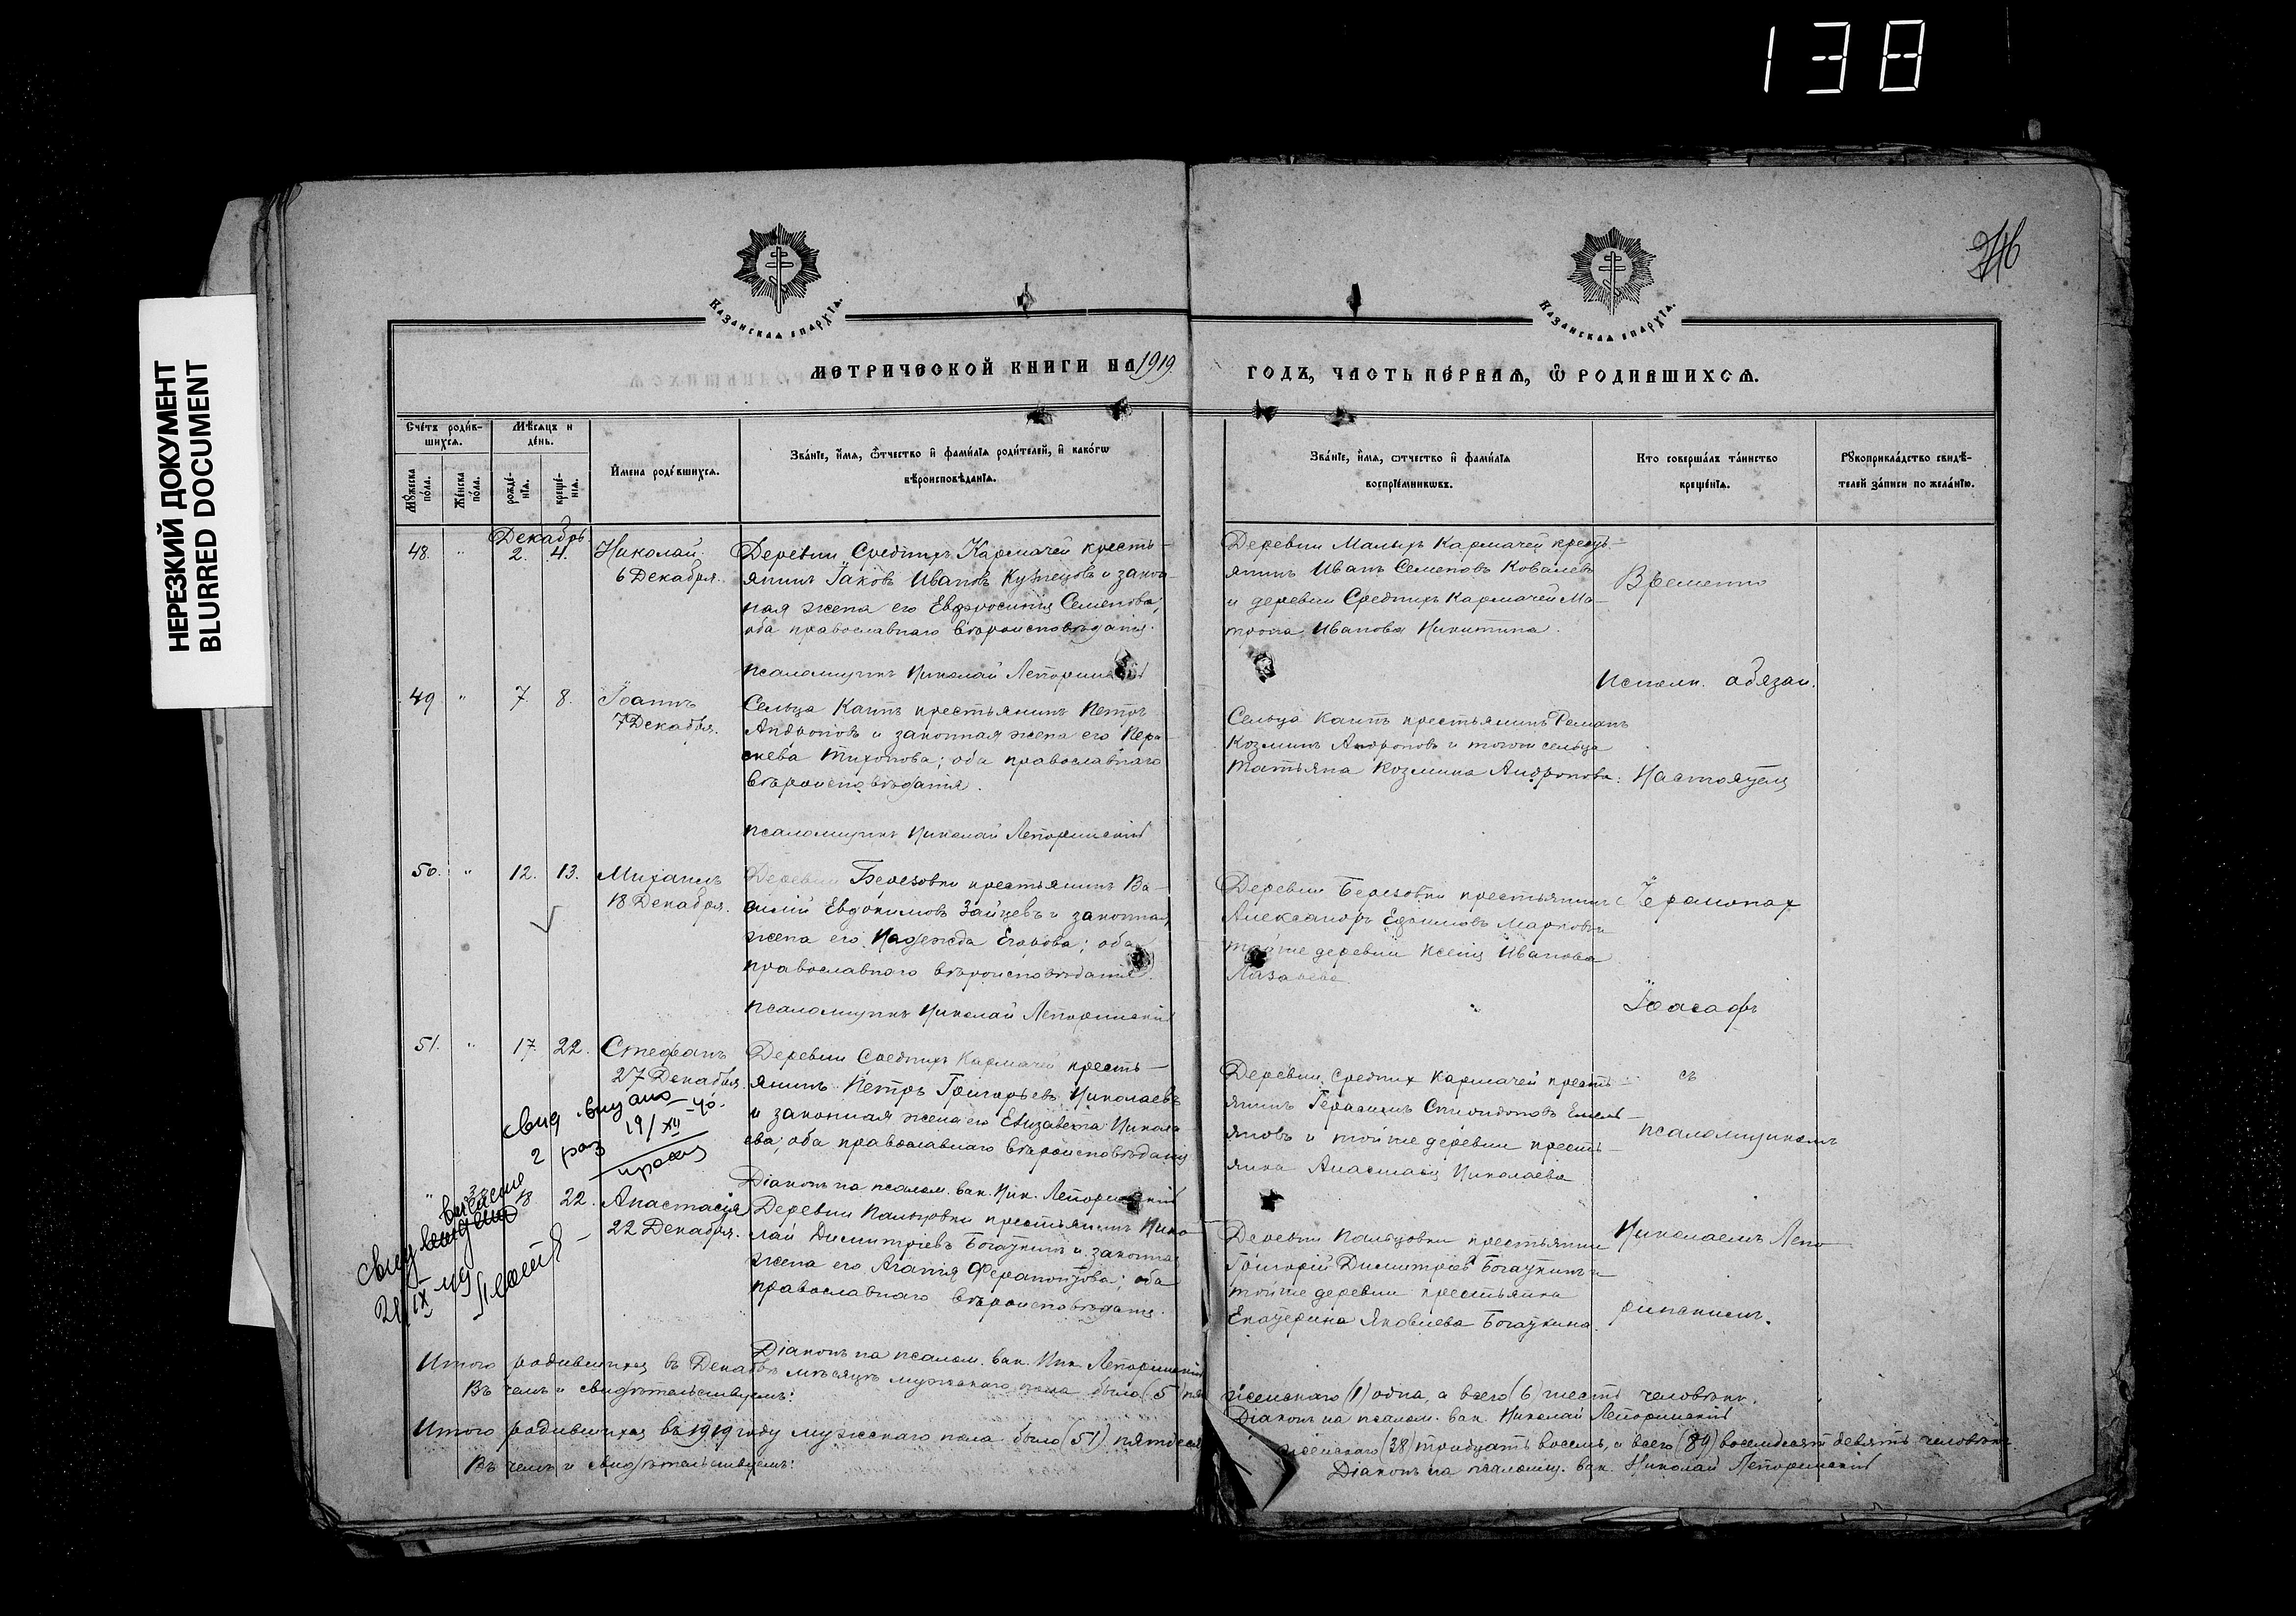 138
НЕРЕЗКИЙ ДОКУМЕНТ
BLURRED DOCUMENT
Казанская епархїѧ.
Казанская епархїѧ.
МЕТРИЧЕСКОЙ КНИГИ НА 1919
ГОДЪ, ЧАСТЬ ПЕ́РВАѦ, Ѡ҆ РОДИВШИХСѦ.
Сче́тъ роди́в-
шихсѧ.
Мѣ́сѧцъ и
де́нь.
Мꙋ́жеска по́ла.
Же́нска по́ла.
рожде́-нїѧ.
креще́-нїѧ.
И҆мена роди́вшихсѧ.
Зва́нїе, и҆́мѧ, ѻ҆́тчество и҆ фами́лїѧ роди́телей, и҆ како́гѡ
вѣроисповѣ́данїѧ.
Зва́нїе, и҆́мѧ, ѻ҆тчество и҆ фами́лїѧ
воспрїе́мниковъ.
Кто соверша́лъ та́инство
креще́нїѧ.
Рꙋкоприкла́дство свидѣ́-
телей за́писи по жела́нїю.
Декабрь
48. " 2. 4. Николай.
6 Декабря.
Деревни Среднихъ Кармачей кресть-
янинъ Іаковъ Ивановъ Кузнецовъ и закон-
ная жена его Евфросинія Семенова;
оба православнаго вѣроисповѣданія.
Псаломщикъ Николай Лепоринскій
Деревни Малыхъ Кармачей кресть-
янинъ Иванъ Семеновъ Ковалевъ
и деревни Среднихъ Кармачей Ма-
трона Иванова Никитина.
Временно
Исполн. обязан.
49 " 7. 8. Іоаннъ
7 Декабря.
Сельца Каипъ крестьянинъ Петръ
Андроновъ и законная жена его Пера-
скева Тихонова; оба православнаго
вѣроисповѣданія.
Псаломщикъ Николай Лепоринскій
Сельца Каипъ крестьянинъ Романъ
Козминъ Андроновъ и тогоже сельца
Татьяна Козмина Андронова.
Настоятеля
50. " 12. 13. Михаилъ
18 Декабря.
Деревни Березовки крестьянинъ Ва-
силій Евдокимовъ Зайцевъ и законная
жена его Надежда Егорова; оба
православнаго вѣроисповѣданія.
Псаломщикъ Николай Лепоринскій
Деревни Березовки крестьянинъ
Александръ Марковъ и
тойже деревни Ксенія Иванова
Іеромонах
Іоасафъ
51. " 17. 22. Стефанъ
27 Декабря.
Деревни Среднихъ Кармачей кресть-
янинъ Петръ Григорьевъ Николаевъ
и законная жена его Елизавета Никола-
ева; оба православнаго вѣроисповѣданія
Діаконъ на псалом. вак. Ник. Лепоринскій
Деревни Средних Кармачей кресть-
янинъ Герасимъ Спиридоновъ Емель-
яновъ и тойже деревни кресть-
янка Анастасія Николаева
съ
псаломщикомъ
свид. выдано
2 раз 19/XII-40.
" 18 22. Анастасія
22 Декабря.
Деревни Пальцовки крестьянинъ Нико-
лай Димитріевъ Богаткинъ и законная
жена его Агапія Ферапонтова; оба
православнаго вѣроисповѣданія.
Діаконъ на псалом. вак. Ник. Лепоринскій
Деревни Пальцовки крестьянинъ
Григорій Димитріевъ Богаткинъ и
тойже деревни крестьянка
Екатерина Яковлева Богаткина.
Николаемъ Лепо-
ринскимъ.
свид
Итого родившихся въ Декабрѣ мѣсяцѣ мужескаго пола было (5) пять
женскаго (1) одна, а всего (6) шесть человѣкъ.
Въ чемъ и свидѣтельствуемъ:
Діаконъ на псалом. вак. Николай Лепоринскій
Итого родившихся въ 1919 году мужескаго пола было (51) пятьдесят
женскаго (38) тридцать восемь, а всего (89) восемьдесятъ девять человѣкъ.
Въ чемъ и свидѣтельствуемъ:
Діаконъ на псаломщ. вак. Николай Лепоринскій